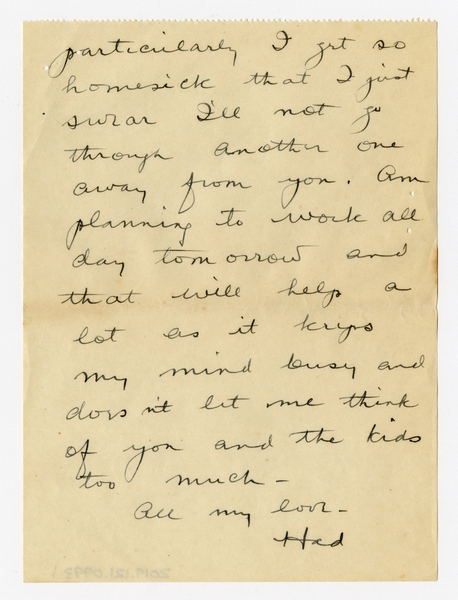 particularly I get so
homesick that I just
swear I'll not go
through another one
away from you. Am
planning to work all
day tomorrow and
that will help a
lot as it keeps
my mind busy and
does n't let me think
of you and the kids
too much -
All my love -
Had
2019.121.0993